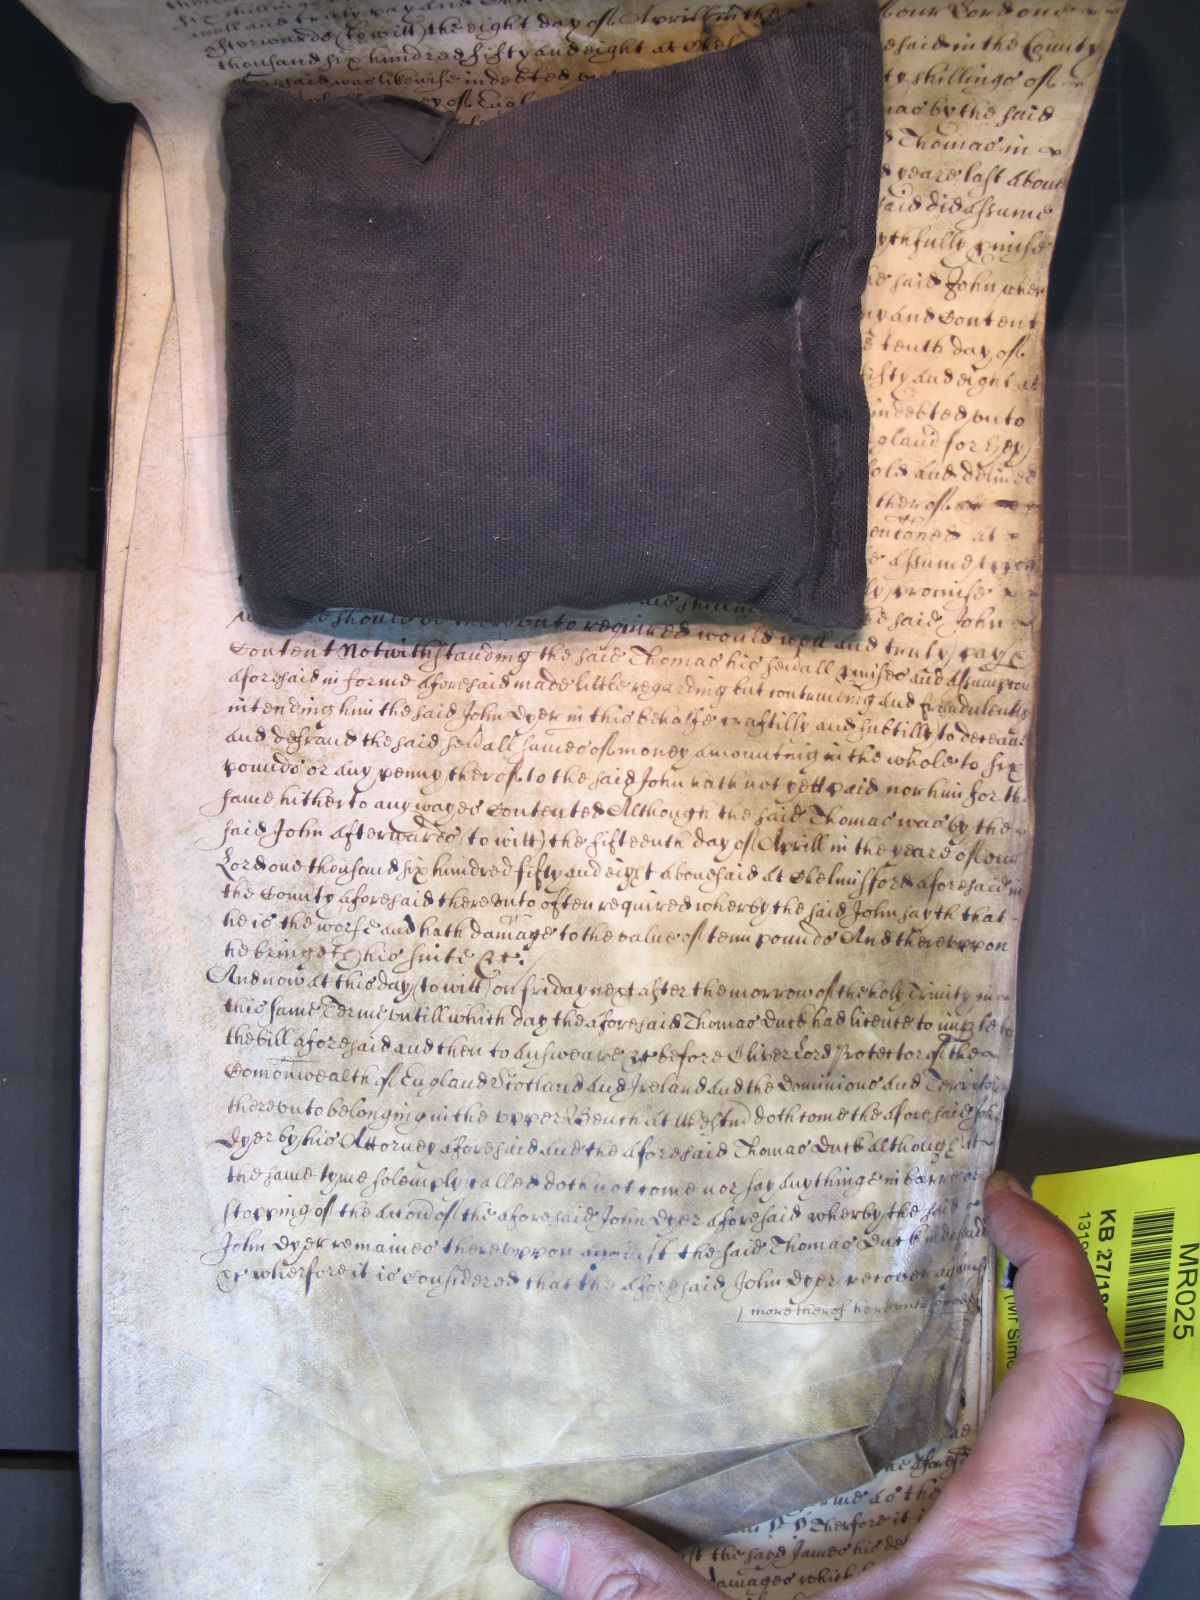 well and truly pay and Con
afterwards (to witt) the eight day of Aprill in the
our Lord one
thousand six hundred fifty and eight at Chel
esaid in the County
aforesaid was likewise indebted
ty shillings of
ey of Engl
mas by the said
d Thomas in
d yeare last above
said did assume
ythfully pmise
he said John when
ay and Content
e tenth day of
ifty and eight at
indebted unto
gland for
old and delivered
therof
entoned at
e assume uppon
ly promise
e said John
should be thereunto required would well and truly paye
Content Notwithstanding the said Thomas his sevall pmises and assumpcon
aforesaid in forme aforesaid made little regarding but contriveing and fraudulently
intending him the said John Dyer in this behalfe craftilly and subtilly to deceave
and defraud the said sevall sumes of money amounting in the whole to six
pounds or any penny therof to the said John hath not yett paid nor him for the
same hitherto any wayes Contented Although the said Thomas was by the
said John afterwards (to witt) the fifteenth day of Aprill in the yeare of our
Lord one thousand six hundred fifty and eight abovesaid at Chelmisford aforesaid in
the County aforesaid thereunto often required wherby the said John sayth that
he is the worse and hath damage to the value of tenn pounds And thereuppon
he bringeth his suite &c:
And now at this day (to witt) on friday next after the morrow of the holy Trinity in
this same Terme untill which day the aforesaid Thomas Duck had licence to imple to
the bill aforesaid and then to answeare &c before Oliver Lord Protector of the
Comonwealth of England Scotland and Ireland and the Dominions and Territor
thereunto belonging in the upper Bench at Westm doth come the aforesaid John
Dyer by his Attorney aforesaid and the aforesaid Thomas Duck although att
the same tyme solemply called doth not come nor say anythinge in barre or
stopping of the accon of the aforesaid John Dyer aforesaid wherby the said
John Dyer remaines thereuppon against the said Thomas Duck undefended
&c wherfore it is Considered that the aforesaid John Dyer recover against
more therof hereunto
KB 27/18
MR025
(Mr Simo
the aforesd
rme as the
Therfore it i
st the sayd James his de
damages which h